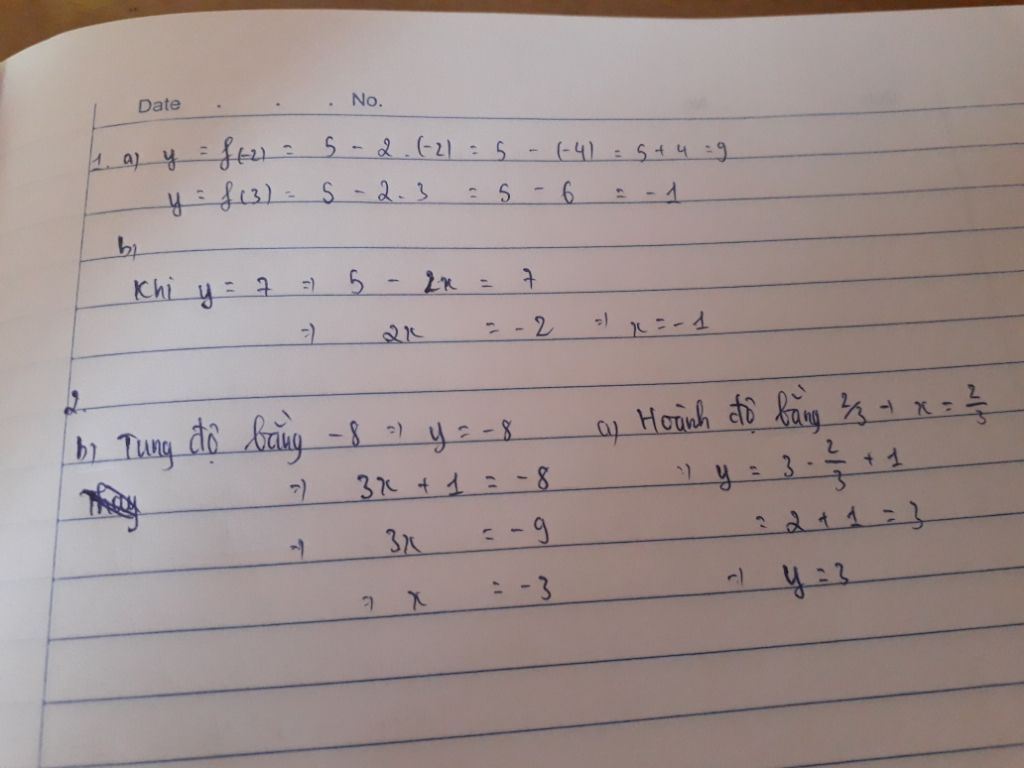 Date . . . No.
1. a) y = f(-2) = 5 - 2.(-2) = 5 - (-4) = 5 + 4 = 9
y = f(3) = 5 - 2.3 = 5 - 6 = -1
b)
Khi y = 7 => 5 - 2x = 7
=> 2x = -2 => x = -1
2.
b) Tung độ bằng -8 => y = -8
=> 3x + 1 = -8
=> 3x = -9
=> x = -3
a) Hoành độ bằng 2/3 => x = 2/3
=> y = 3 . 2/3 + 1
= 2 + 1 = 3
=> y = 3